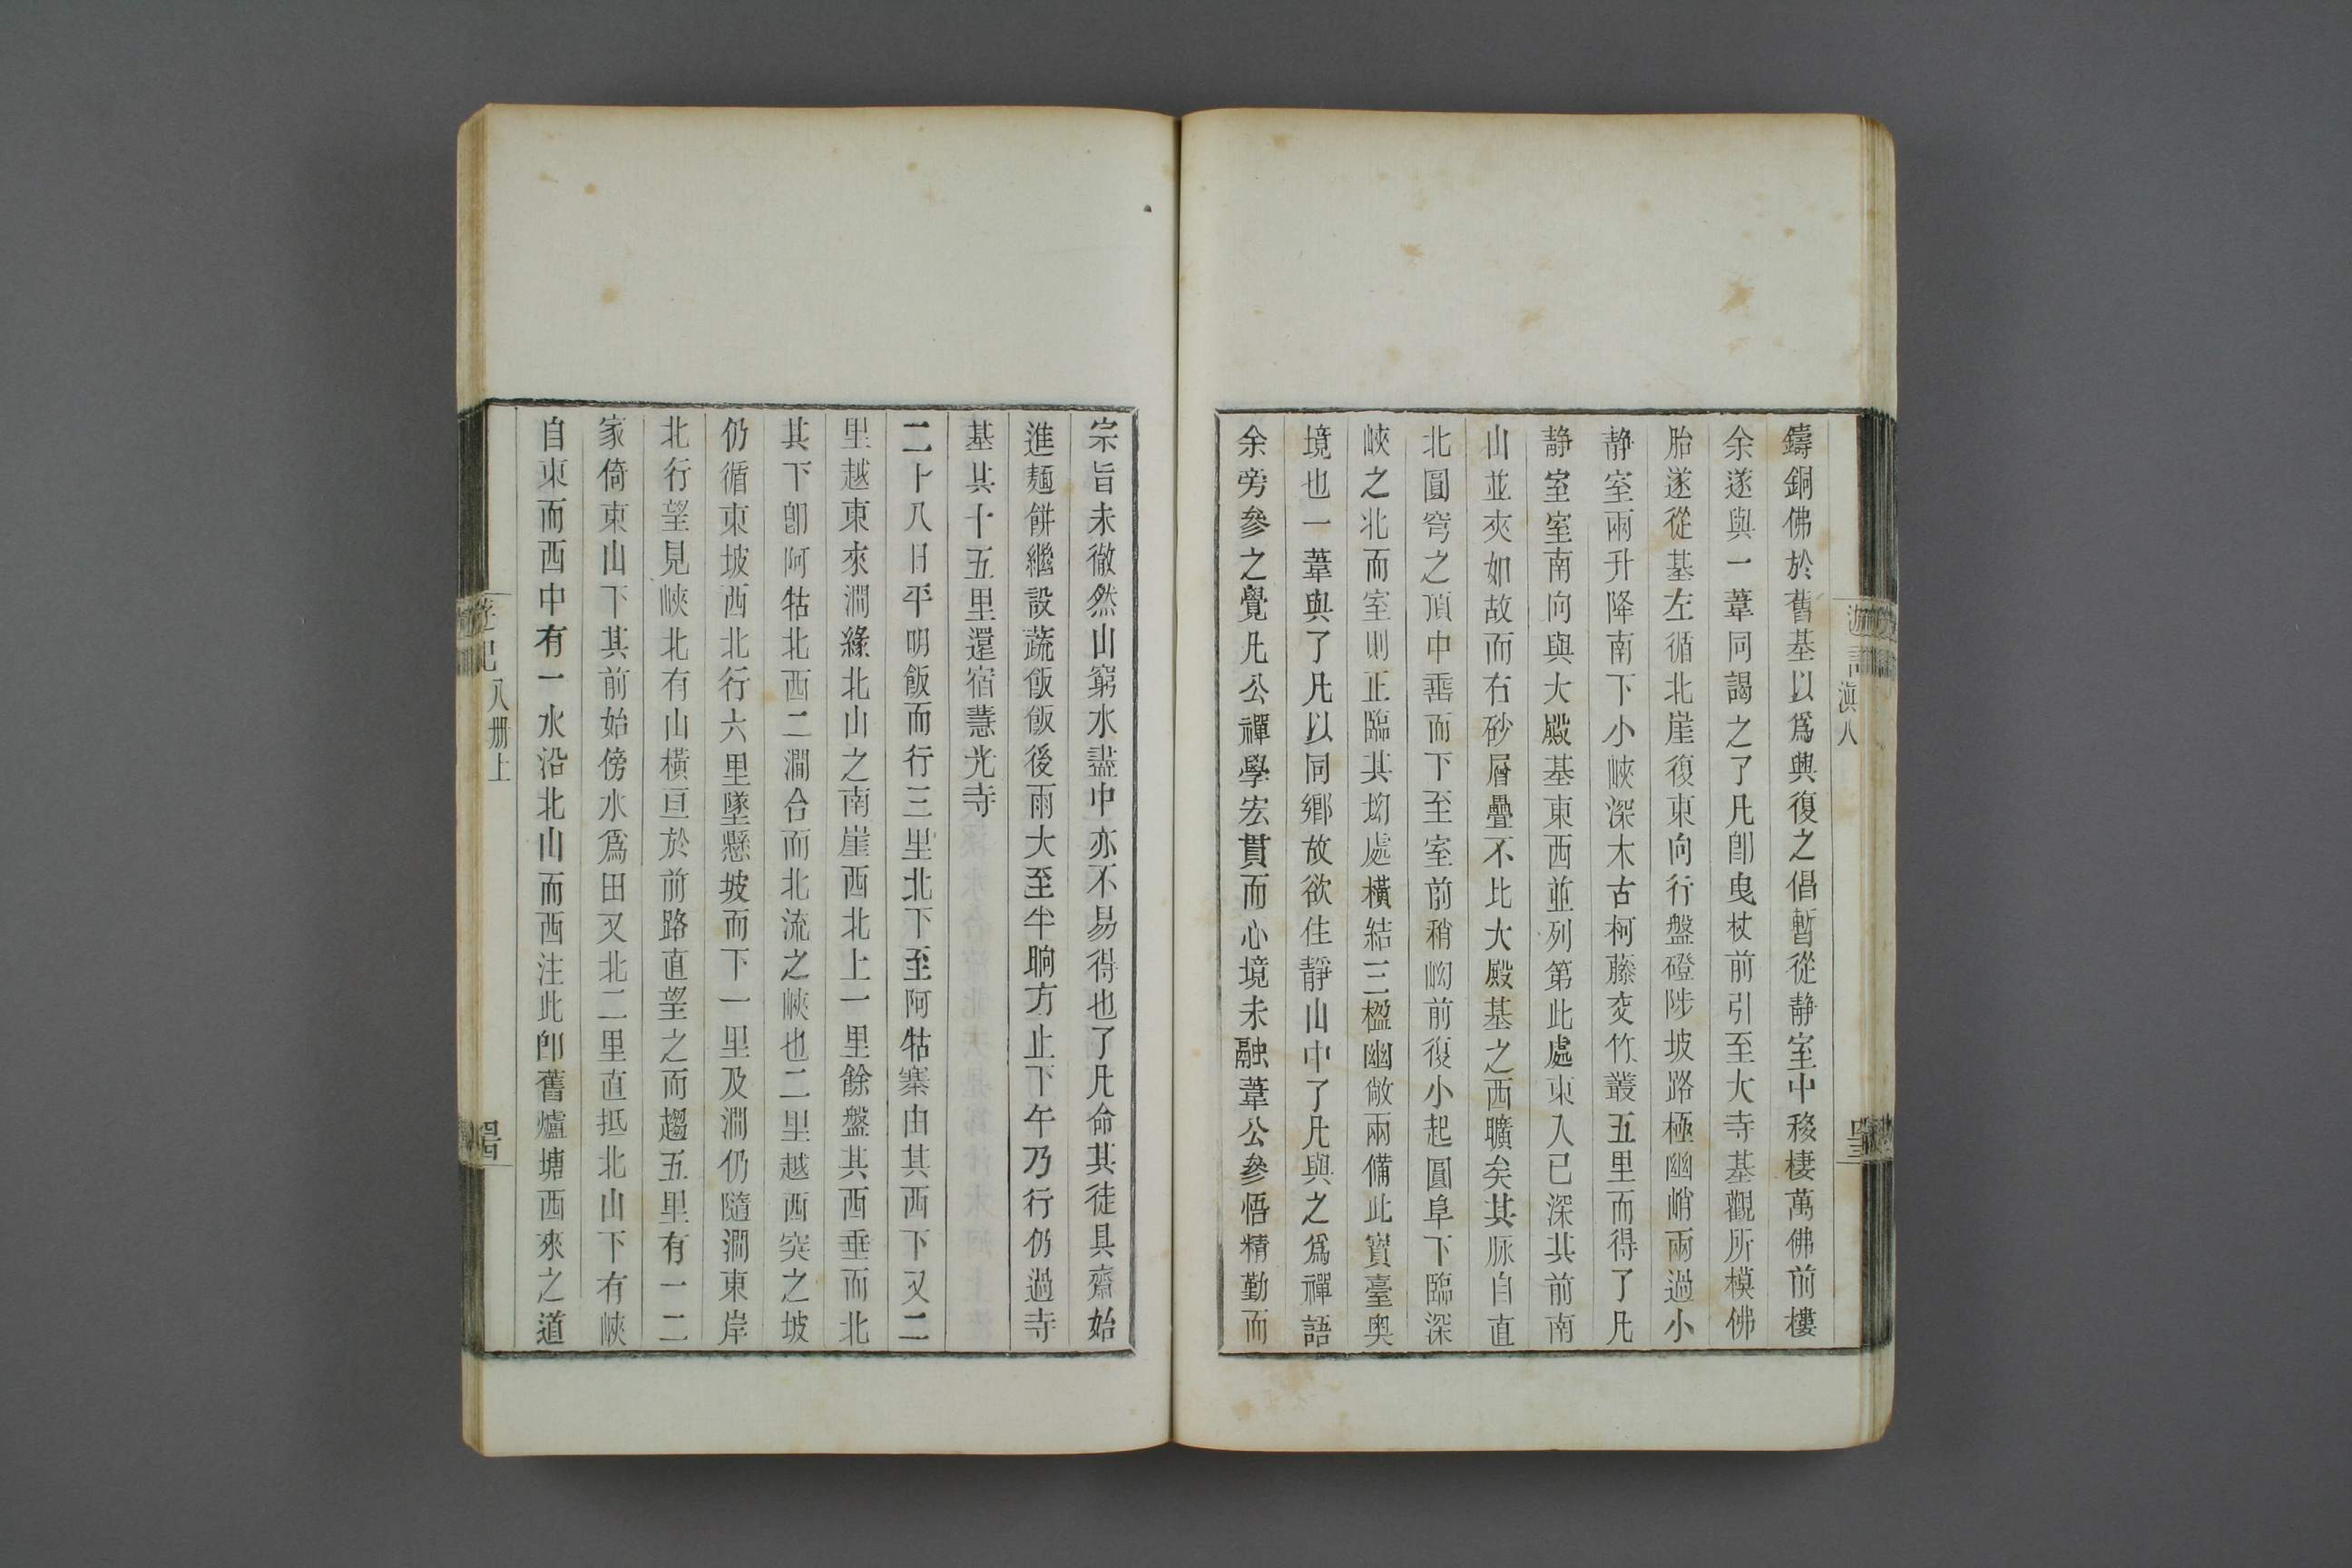 鑄銅佛於舊基以爲興復之倡暫從静室中移棲萬佛前樓
余遂與一葦同謁之了凡卽曳杖前引至大寺基觀所模佛
胎遂從基左循北崖復東向行盤磴陟坡路極幽峭兩過小
靜室兩升降南下小峽深木古柯藤交竹叢五里而得了凡
静室室南向與大殿基東西並列第此處東入已深其前南
山並夾如故而右砂層疊不比大殿基之西曠矣其脉自直
北圓穹之頂中垂而下至室前稍坳前復小起圓阜下臨深
峽之北而室則正臨其坳處橫結三楹幽敞兩備此寳臺奥
境也一葦與了凡以同鄉故欲住靜山中了凡與之爲禪語
余旁參之覺凡公禪學宏貫而心境未融葦公參悟精勤而
宗旨未徹然山窮水盡中亦不易得也了凡命其徒具齋始
進麵餅繼設蔬飯飯後雨大至半晌方止下午乃行仍過寺
基共十五里還宿慧光寺
二十八日平明飯而行三里北下至阿牯寨由其西下又二
里越東來澗緣北山之南崖西北上一里餘盤其西垂而北
其下卽阿牯北西二澗合而北流之峽也二里越西突之坡
仍循東坡西北行六里墜懸坡而下一里及澗仍隨澗東岸
北行望見峽北有山橫亘於前路直望之而趨五里有一二
家倚東山下其前始傍水爲田又北二里直抵北山下有峽
自東而西中有一水沿北山而西注此卽舊爐塘西來之道
滇八
四三
遊記
八册上
四四